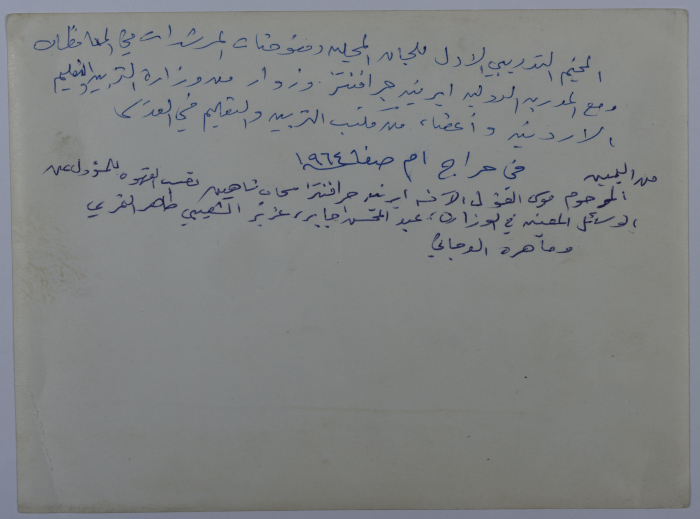 المخيم التدريبي الاول للجان المحلية ومفوضات المرشدات في المحافظات
ومع المدربة الدولية ايرينه جرافنتز وزوار من وزارة التربية والتعليم
الاردنية وأعضاء من مكتب التربية والتعليم في القدس
في حراج ام صفا ١٩٦٤
من اليمين
المرحوم موسى الآنسه ايرينه جرافنتز شاهين تصب القهوة للمسؤول عن
الوسائل المعينه في الوزارة، عبد المحسن جابر، عزيز الشعيبي طاهر
وماهرة الدجاني